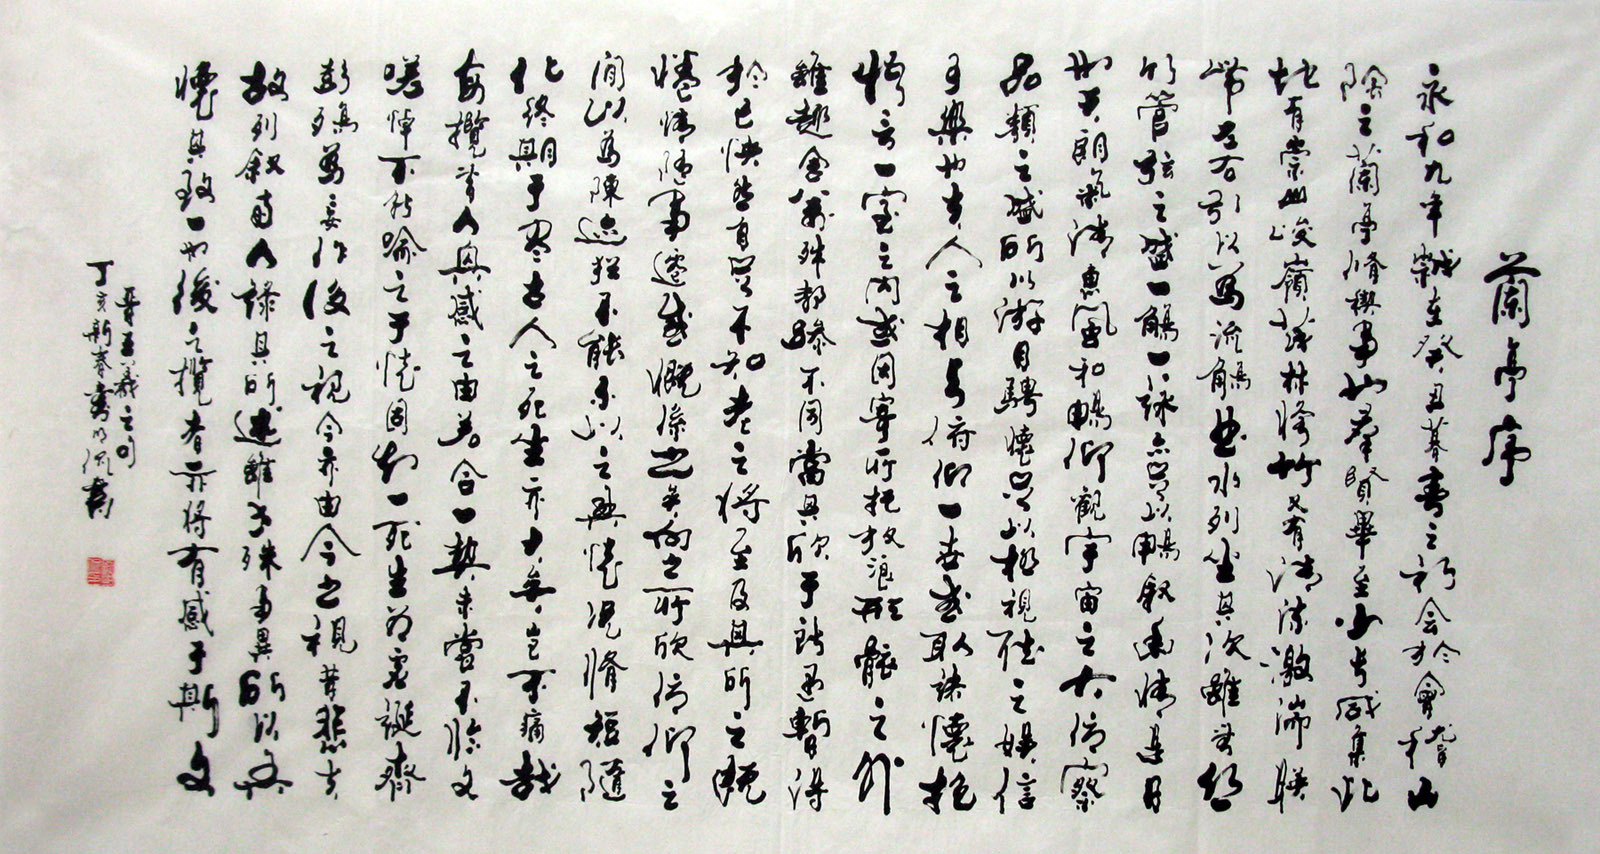 蘭亭序
永和九年歲在癸丑暮春之初會於會稽山
陰之蘭亭脩禊事也羣賢畢至少長咸集此
地有崇山峻嶺茂林脩竹又有清流激湍映
帶左右引以為流觴曲水列坐其次雖無絲
竹管弦之盛一觴一詠亦足以暢叙幽情是日
也天朗氣清惠風和暢仰觀宇宙之大俯察
品類之盛所以游目騁懷足以極視聽之娛信
可樂也夫人之相與俯仰一世或取諸懷抱
悟言一室之內或因寄所托放浪形骸之外
雖趣舍萬殊靜躁不同當其欣于所遇暫得
於己快然自足不知老之將至及其所之既
惓情隨事遷感慨係之矣向之所欣俯仰之
間以為陳迹猶不能不以之興懷況脩短隨
化終期于盡古人云死生亦大矣豈不痛哉
每攬昔人興感之由若合一契未嘗不臨文
嗟悼不能喻之于懷固知一死生為虛誕齊
彭殤為妄作後之視今亦由今之視昔悲夫
故列叙時人錄其所述雖世殊事異所以興
懷其致一也後之攬者亦將有感于斯文
王羲之句
丁亥新春書